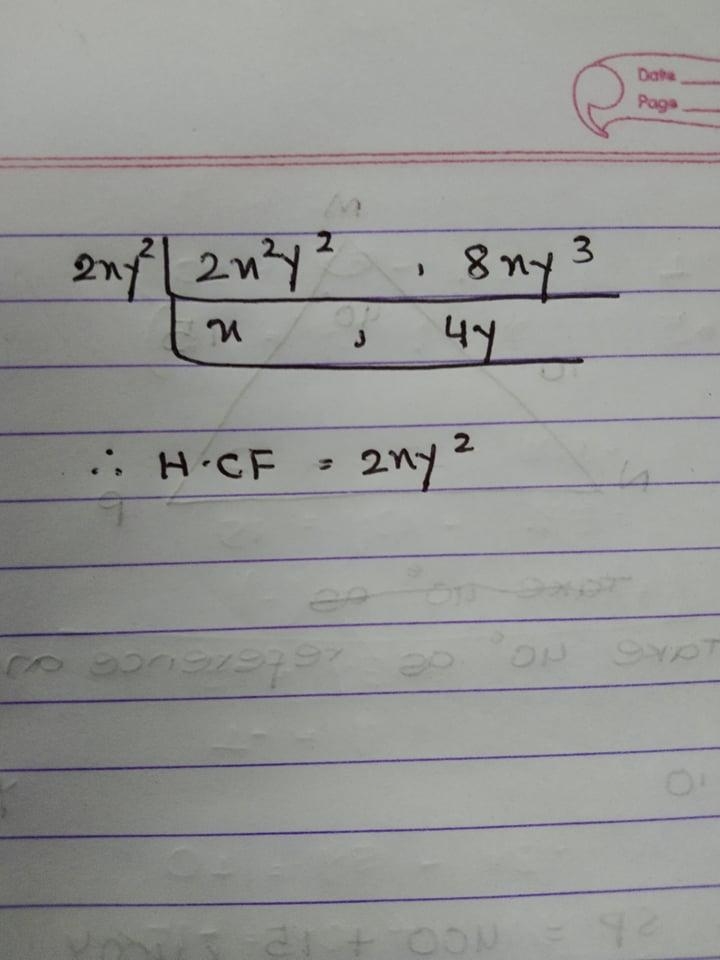 Date
Page
2xy² | 2x²y² , 8xy³
x , 4y
∴ H.CF = 2xy²